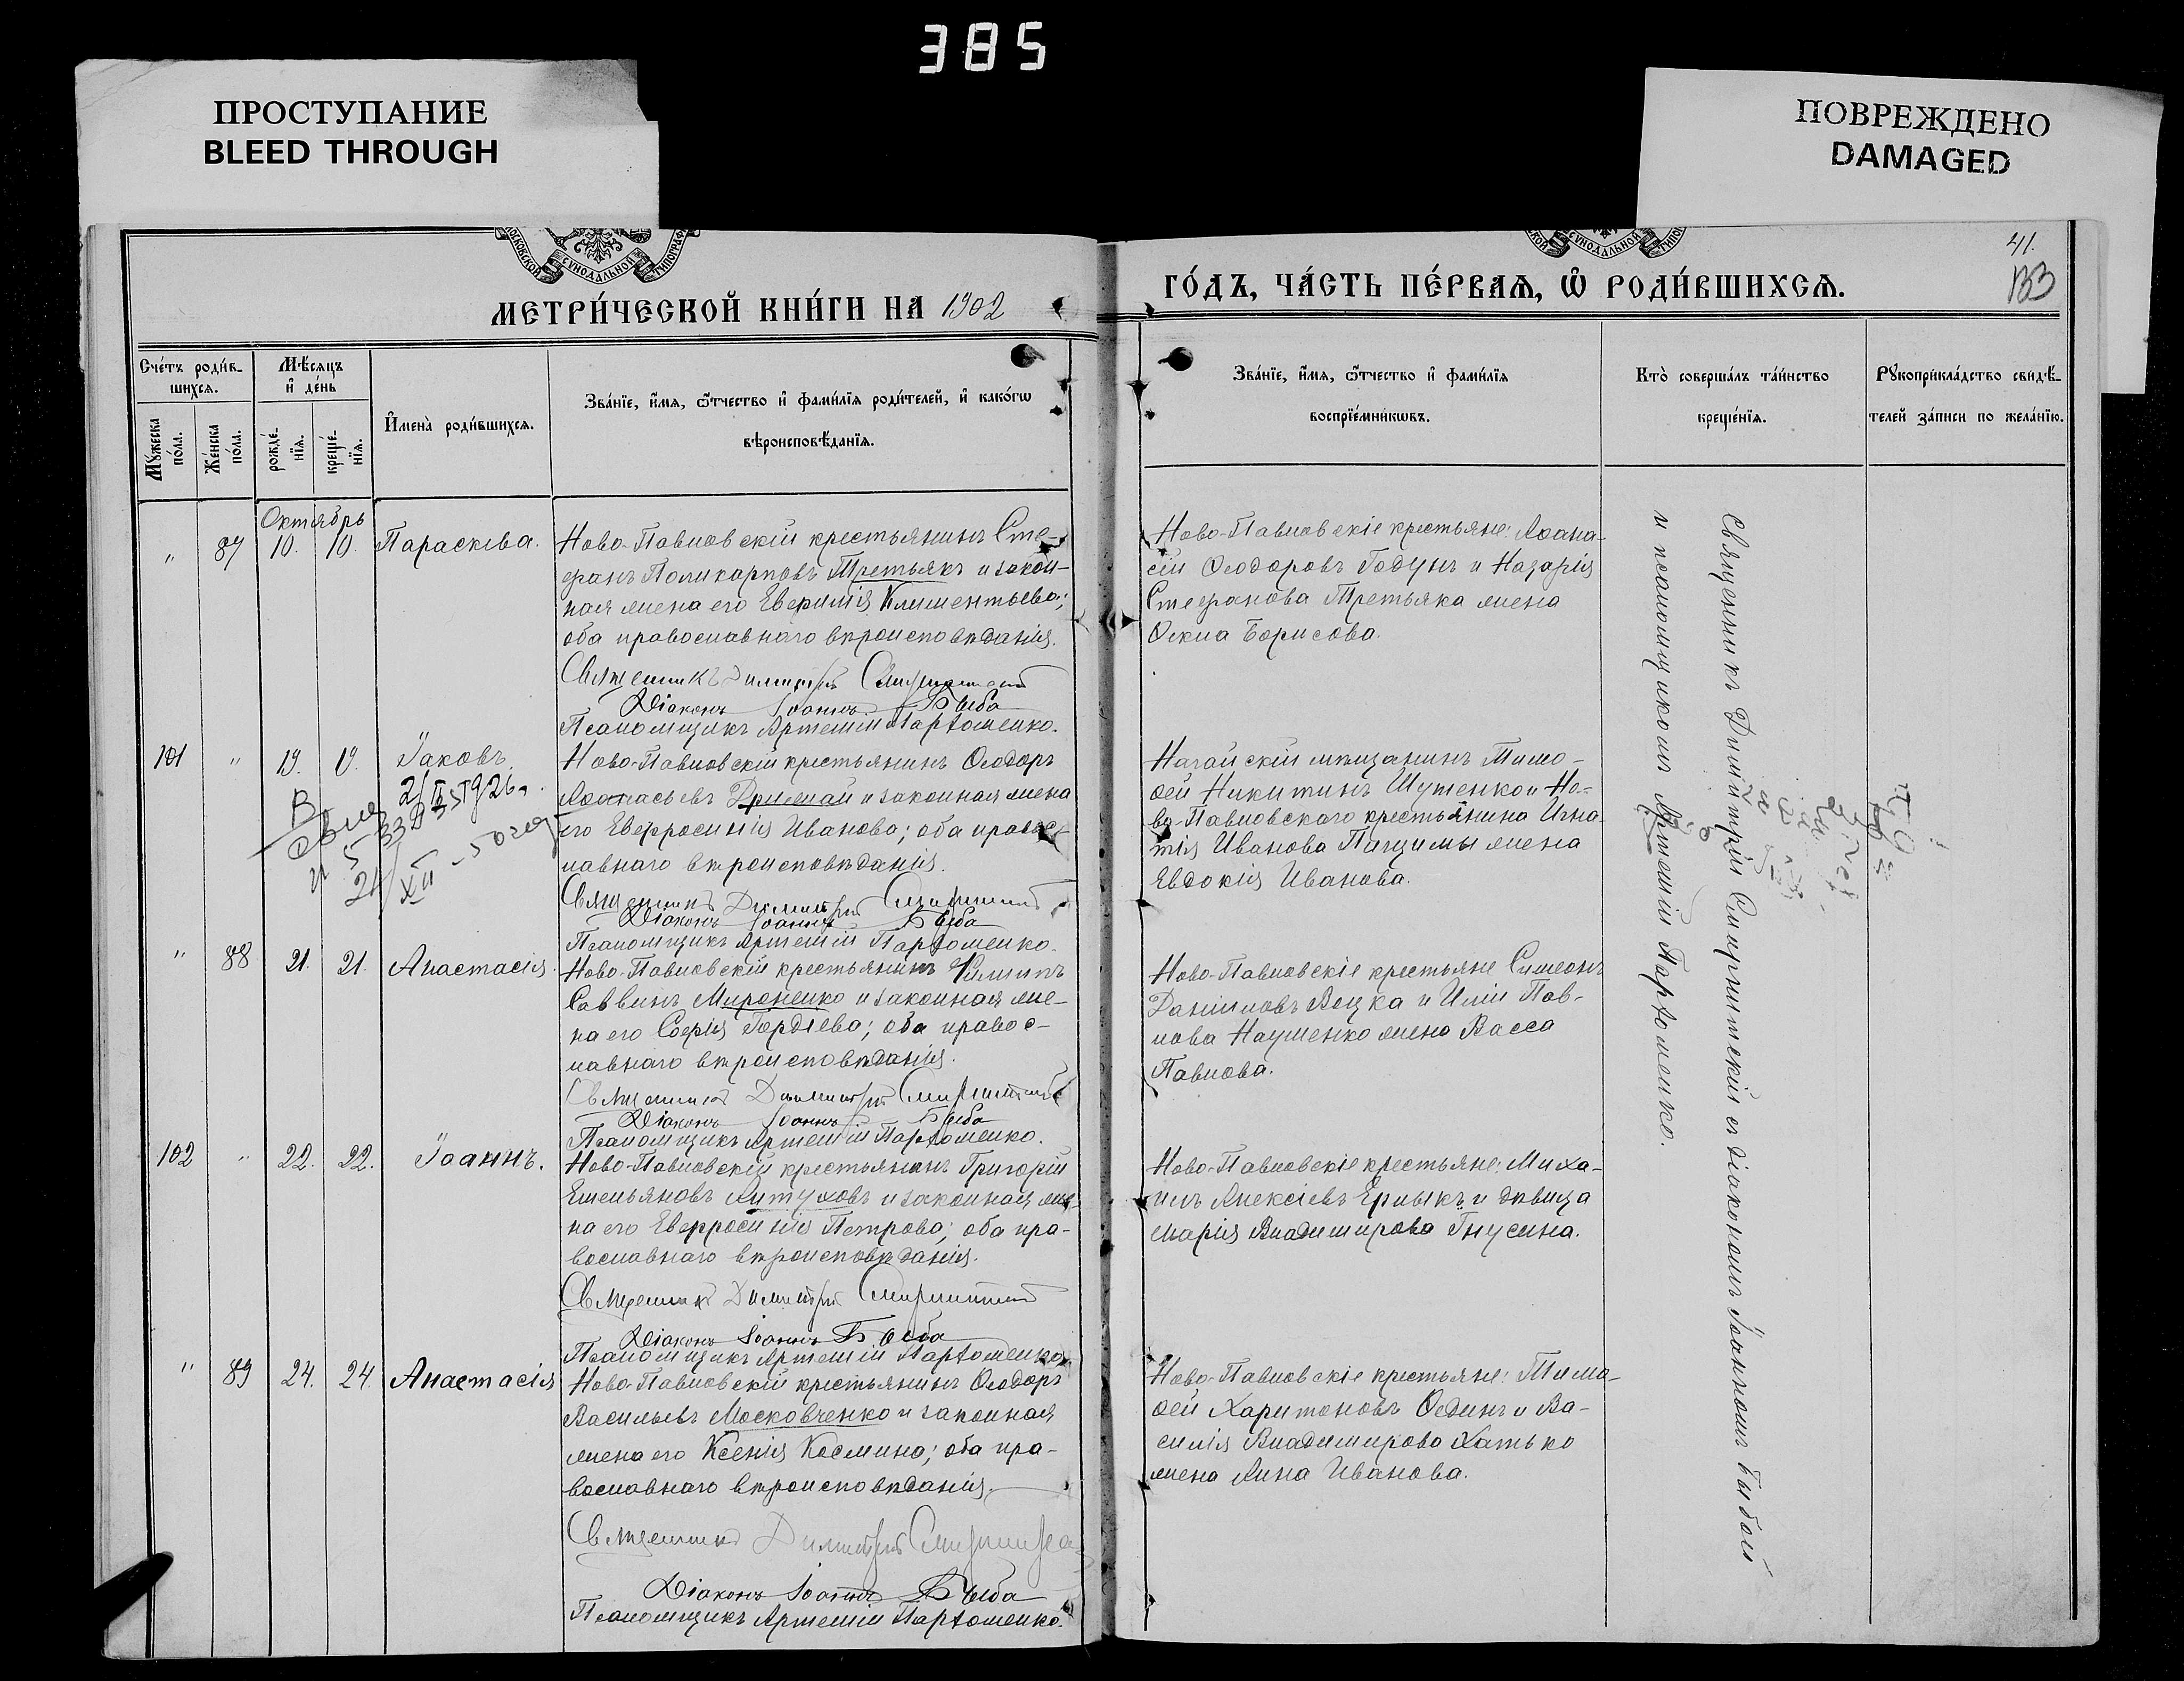 385
ПРОСТУПАНИЕ
BLEED THROUGH
ПОВРЕЖДЕНО
DAMAGED
МОСКОВСКОЙ СѴНОДАЛЬНОЙ ТИПОГРАФ
СѴНОДАЛЬНОЙ
41.
МЕТРИ́ЧЕСКОЙ КНИ́ГИ НА 1902
ГО́ДЪ, ЧА́СТЬ ПЕ́РВАѦ, Ѡ҆ РОДИ́ВШИХСѦ.
133
Сче́тъ роди́в-
шихся.
Мѣ́сяцъ
и҆ де́нь
Мꙋ́жеска
по́ла.
Же́нска
по́ла.
рожде́-
нїя.
креще́-
нїя.
И҆мена̀ роди́вшихся.
Зва́нїе, и҆́мя, ѻ҆́тчество и҆ фами́лїя роди́телей, и҆ како́гѡ
вѣроисповѣ́данїя.
Зва́нїе, и҆́мя, ѻ҆́тчество и҆ фами́лїя
воспрїе́мникѡвъ.
Кто̀ соверша́лъ та́инство
креще́нїя.
Рꙋкоприкла́дство свидѣ́-
телей за́писи по жела́нїю.
Октябрь
" 87 10. 10. Параскева.
Ново-Павловскій крестьянинъ Сте-
фанъ Поликарповъ Третьякъ и закон-
ная жена его Евфимія Климентьева;
оба православнаго вѣроисповѣданія.
Священникъ Димитрій Смирнитскій
Діаконъ Іоаннъ Быба
Псаломщикъ Артемій Пархоменко.
Ново-Павловскіе крестьяне: Аѳана-
сій Ѳеодоровъ Годунъ и Назарія
Стефанова Третьяка жена
Ѳекла Борисова.
101 " 19. 19. Іаковъ.
Ново-Павловскій крестьянинъ Ѳеодоръ
Аѳанасьевъ Дрималй и законная жена
его Евфросинія Иванова; оба правос-
лавнаго вѣроисповѣданія.
Священникъ Димитрій Смирнитскій
Діаконъ Іоаннъ Быба
Псаломщикъ Артемій Пархоменко.
Ногайскій мѣщанинъ Тимо-
ѳей Никитинъ Шутенко и Но-
во-Павловскаго крестьянина Игна-
тія Иванова Пащимы жена
Евдокія Иванова.
" 88 21. 21. Анастасія.
Ново-Павловскій крестьянинъ Филипъ
Саввинъ Мироненко и законная же-
на его Софія Гордіева; оба правос-
лавнаго вѣроисповѣданія.
Священникъ Димитрій Смирнитскій
Діаконъ Іоаннъ Быба
Псаломщикъ Артемій Пархоменко.
Ново-Павловскіе крестьяне Симеонъ
Даниловъ Вецка и Иліи Пав-
лова Наушенко жена Васса
Павлова.
102 " 22. 22. Іоаннъ.
Ново-Павловскій крестьянинъ Григорій
Емельяновъ Алтуховъ и законная же-
на его Евфросинія Петрова; оба пра-
вославнаго вѣроисповѣданія.
Священникъ Димитрій Смирнитскій
Діаконъ Іоаннъ Быба
Псаломщикъ Артемій Пархоменко.
Ново-Павловскіе крестьяне: Миха-
илъ Алексіевъ Ермыкъ и дѣвица
Марія Владимирова Гнусина.
" 89 24. 24. Анастасія
Ново-Павловскій крестьянинъ Ѳеодоръ
Васильевъ Московченко и законная
жена его Ксенія Космина; оба пра-
вославнаго вѣроисповѣданія.
Священникъ Димитрій Смирнитскій
Діаконъ Іоаннъ Быба
Псаломщикъ Артемій Пархоменко.
Ново-Павловскіе крестьяне: Тимо-
ѳей Харитоновъ Оединъ и Ва-
силія Владимирова Хатько
жена Анна Иванова.
Священникъ Димитрій Смирнитскій съ діакономъ Іоанномъ Быбой
и псаломщикомъ Артеміемъ Пархоменко.